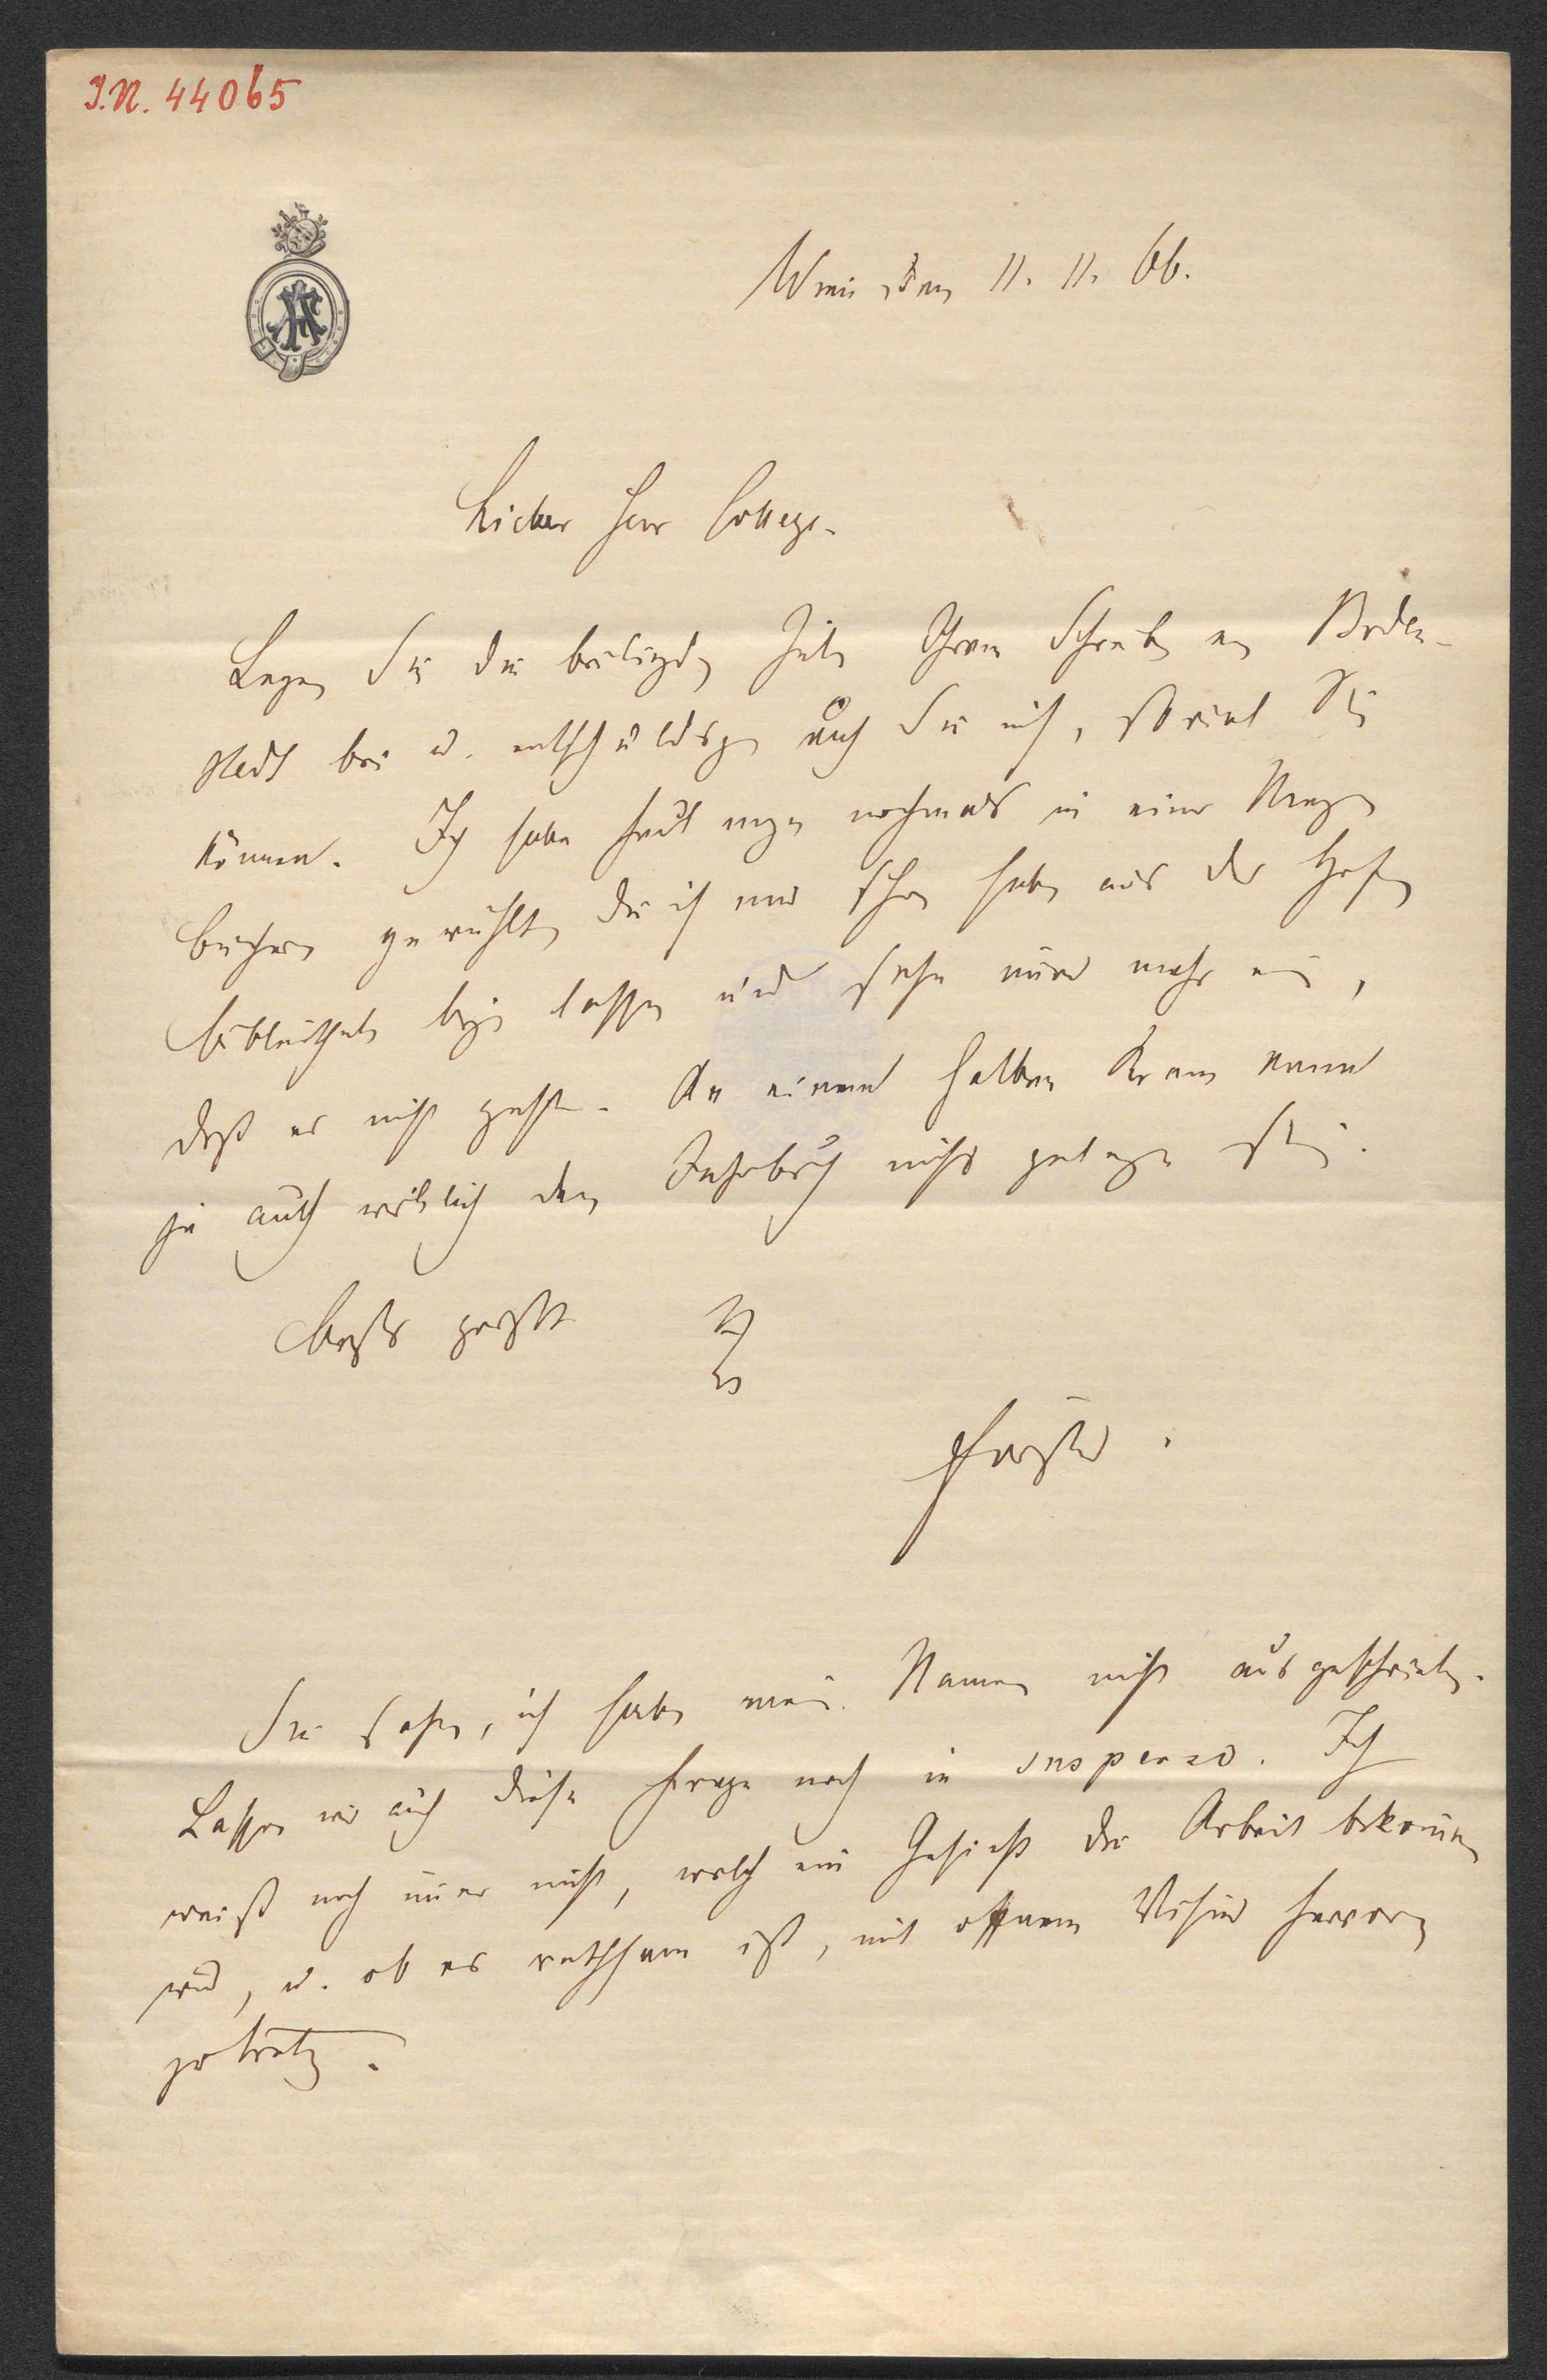 I.N. 44065
Wien den 11. 11. 66.
Lieber Herr College.
Legen Sie die beiliegenden Zeilen Ihrem Schreiben an Boden-
stedt bei u. entschuldigen auch Sie mich, soviel Sie
können. Ich habe heut morgen nochmals in einer Menge
Bücher gewühlt, die ich mir schon habe aus der Hof-
bibliothek legen lassen und sehe immer mehr ein,
daß es nicht geht. An einem halben Kram kann
ja auch wirklich dem Jahrbuch nichts gelegen sein.
Bestens grüßt
Förster.
Sie sehen, ich habe meinen Namen nicht ausgeschrieben.
Lassen wir auch diese Frage noch in suspenso. Ich
weiß noch immer nicht, welch ein Gesicht die Arbeit bekommen
wird, u. ob es rathsam ist, mit offenem Visier hervor
zu treten.